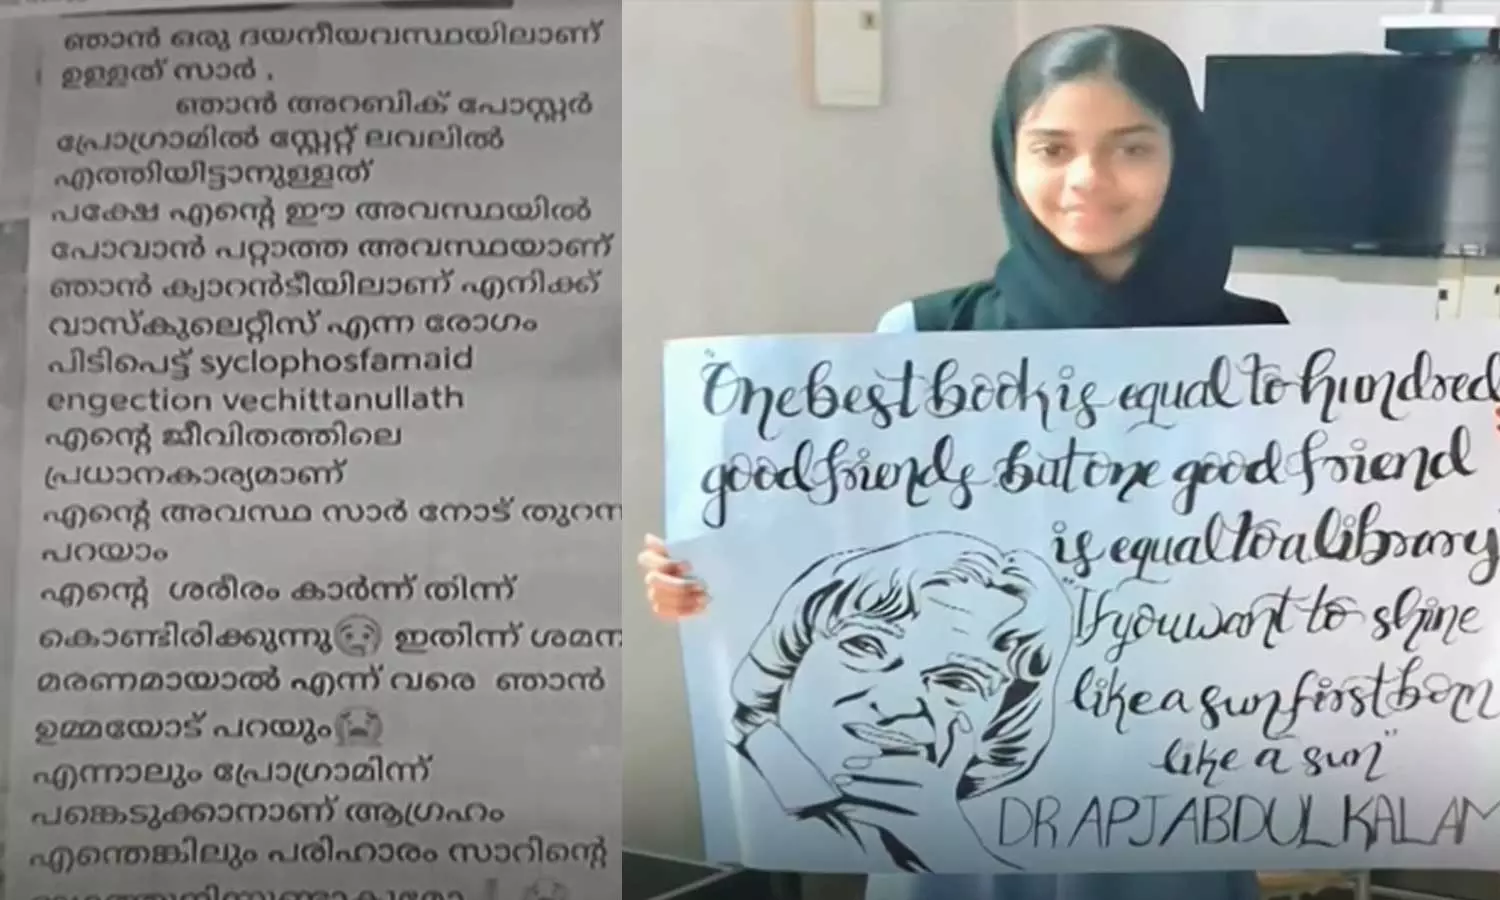 ഞാൻ ഒരു ദയനീയവസ്ഥയിലാണ്
ഉള്ളത് സാർ .
ഞാൻ അറബിക് പോസ്റ്റർ
പ്രോഗ്രാമിൽ സ്റ്റേറ്റ് ലവലിൽ
എത്തിയിട്ടാനുള്ളത്
പക്ഷേ എന്റെ ഈ അവസ്ഥയിൽ
പോവാൻ പറ്റാത്ത അവസ്ഥയാണ്
ഞാൻ ക്വാറൻടീയിലാണ് എനിക്ക്
വാസ്കുലെറ്റീസ് എന്ന രോഗം
പിടിപെട്ട് syclophosfamaid
engection vechittanullath
എന്റെ ജീവിതത്തിലെ
പ്രധാനകാര്യമാണ്
എന്റെ അവസ്ഥ സാർ നോട് തുറന്ന
പറയാം
എന്റെ ശരീരം കാർന്ന് തിന്ന്
കൊണ്ടിരിക്കുന്നു😢 ഇതിന്ന് ശമന
മരണമായാൽ എന്ന് വരെ ഞാൻ
ഉമ്മയോട് പറയും😭
എന്നാലും പ്രോഗ്രാമിന്ന്
പങ്കെടുക്കാനാണ് ആഗ്രഹം
എന്തെങ്കിലും പരിഹാരം സാറിന്റെ
"One best book is equal to hundred
good friends but one good friend
is equal to a library"
"If you want to shine
like a sun first born
like a sun"
DR APJ ABDUL KALAM